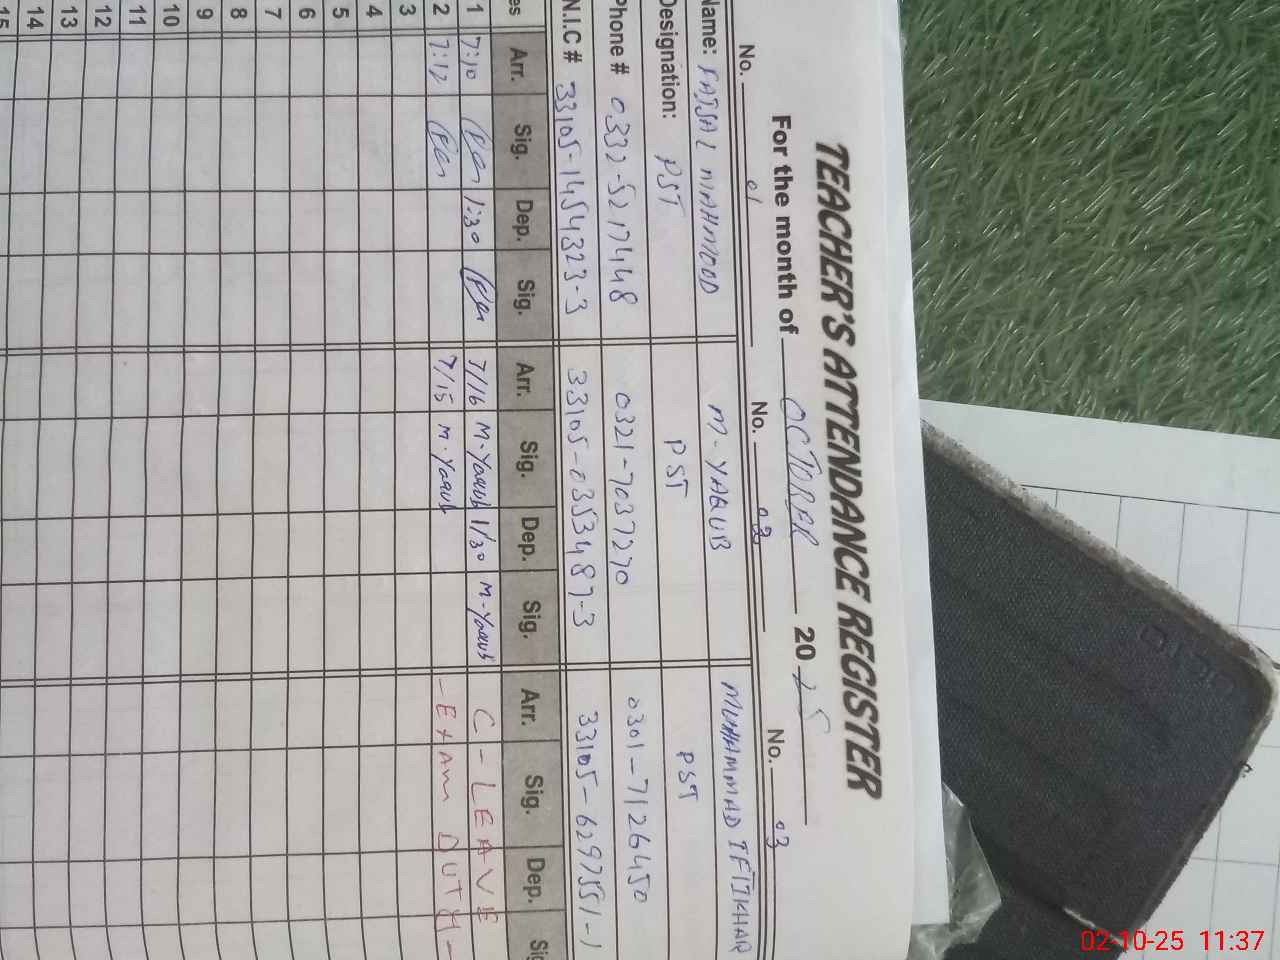 TEACHER'S ATTENDANCE REGISTER
For the month of OCTOBER 2025
No. 01 No. 02 No. 03
Name: FAISAL MAHMOOD M-YAQUB MUHAMMAD IFTIKHAR
Designation: PST PST PST
Phone # 0332-5217448 0321-7037270 0301-7126450
N.I.C # 33105-1454323-3 33105-0353487-3 33105-6297551-1
es Arr. Sig. Dep. Sig. Arr. Sig. Dep. Sig. Arr. Sig. Dep. Sig
1 7:10 1:30 7/16 M-Yaqub 1/30 M-Yaqub C-LEAVE
2 7:12 7/15 M-Yaqub -EXAM DUTY-
3
4
5
6
7
8
9
10
11
12
13
14
15
02-10-25 11:37